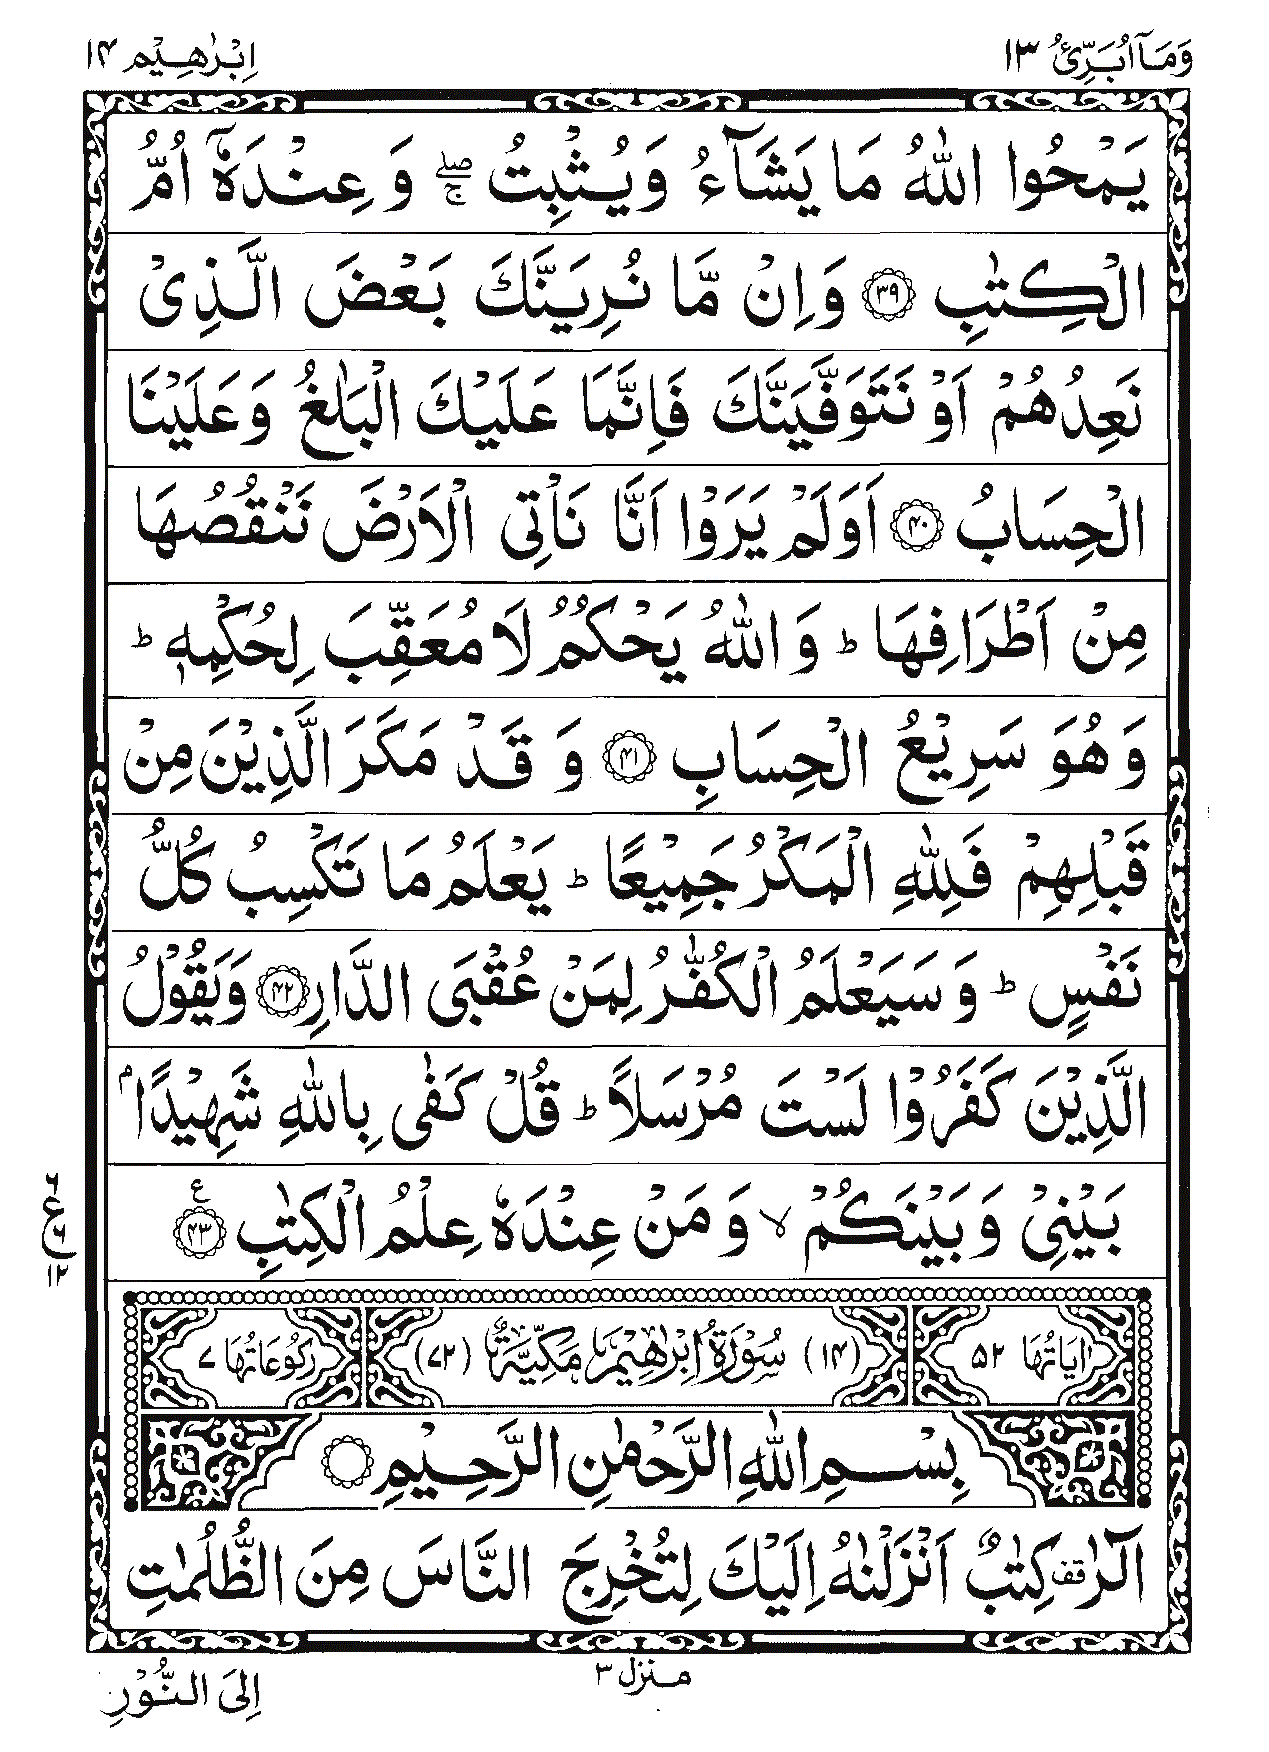 وَمَآ اُبَرِّئُ ١٣
اِبْرٰهِـيْم ١۴
يَمْحُوا اللّٰهُ مَا يَشَآءُ وَيُثْبِتُ ۖۚ وَعِنْدَهٗۤ اُمُّ
الْكِتٰبِ ﴿٣٩﴾ وَاِنْ مَّا نُرِيَنَّكَ بَعْضَ الَّذِىْ
نَعِدُهُمْ اَوْ نَتَوَفَّيَنَّكَ فَاِنَّمَا عَلَيْكَ الْبَلٰغُ وَعَلَيْنَا
الْحِسَابُ ﴿۴٠﴾ اَوَلَمْ يَرَوْا اَنَّا نَاْتِى الْاَرْضَ نَنْقُصُهَا
مِنْ اَطْرَافِهَا ؕ وَاللّٰهُ يَحْكُمُ لَا مُعَقِّبَ لِحُكْمِهٖ ؕ
وَهُوَ سَرِيْعُ الْحِسَابِ ﴿۴١﴾ وَقَدْ مَكَرَ الَّذِيْنَ مِنْ
قَبْلِهِمْ فَلِلّٰهِ الْمَكْرُ جَمِيْعًا ؕ يَعْلَمُ مَا تَكْسِبُ كُلُّ
نَفْسٍ ؕ وَسَيَعْلَمُ الْكُفّٰرُ لِمَنْ عُقْبَى الدَّارِ ﴿۴٢﴾ وَيَقُوْلُ
الَّذِيْنَ كَفَرُوْا لَسْتَ مُرْسَلًا ؕ قُلْ كَفٰى بِاللّٰهِ شَهِيْدًاۢ
بَيْنِىْ وَبَيْنَكُمْ ۙ وَمَنْ عِنْدَهٗ عِلْمُ الْكِتٰبِ ﴿۴٣﴾ ع
٦
ع ٦
١٢
اٰيَاتُهَا ۵٢ (١۴) سُوْرَةُ اِبْرٰهِيْمَ مَكِّيَّةٌ (٧٢) رُكُوْعَاتُهَا ٧
بِسْمِ اللّٰهِ الرَّحْمٰنِ الرَّحِيْمِ
الٓرٰ ࣞ كِتٰبٌ اَنْزَلْنٰهُ اِلَيْكَ لِتُخْرِجَ النَّاسَ مِنَ الظُّلُمٰتِ
منزل ٣
اِلَى النُّوْرِ